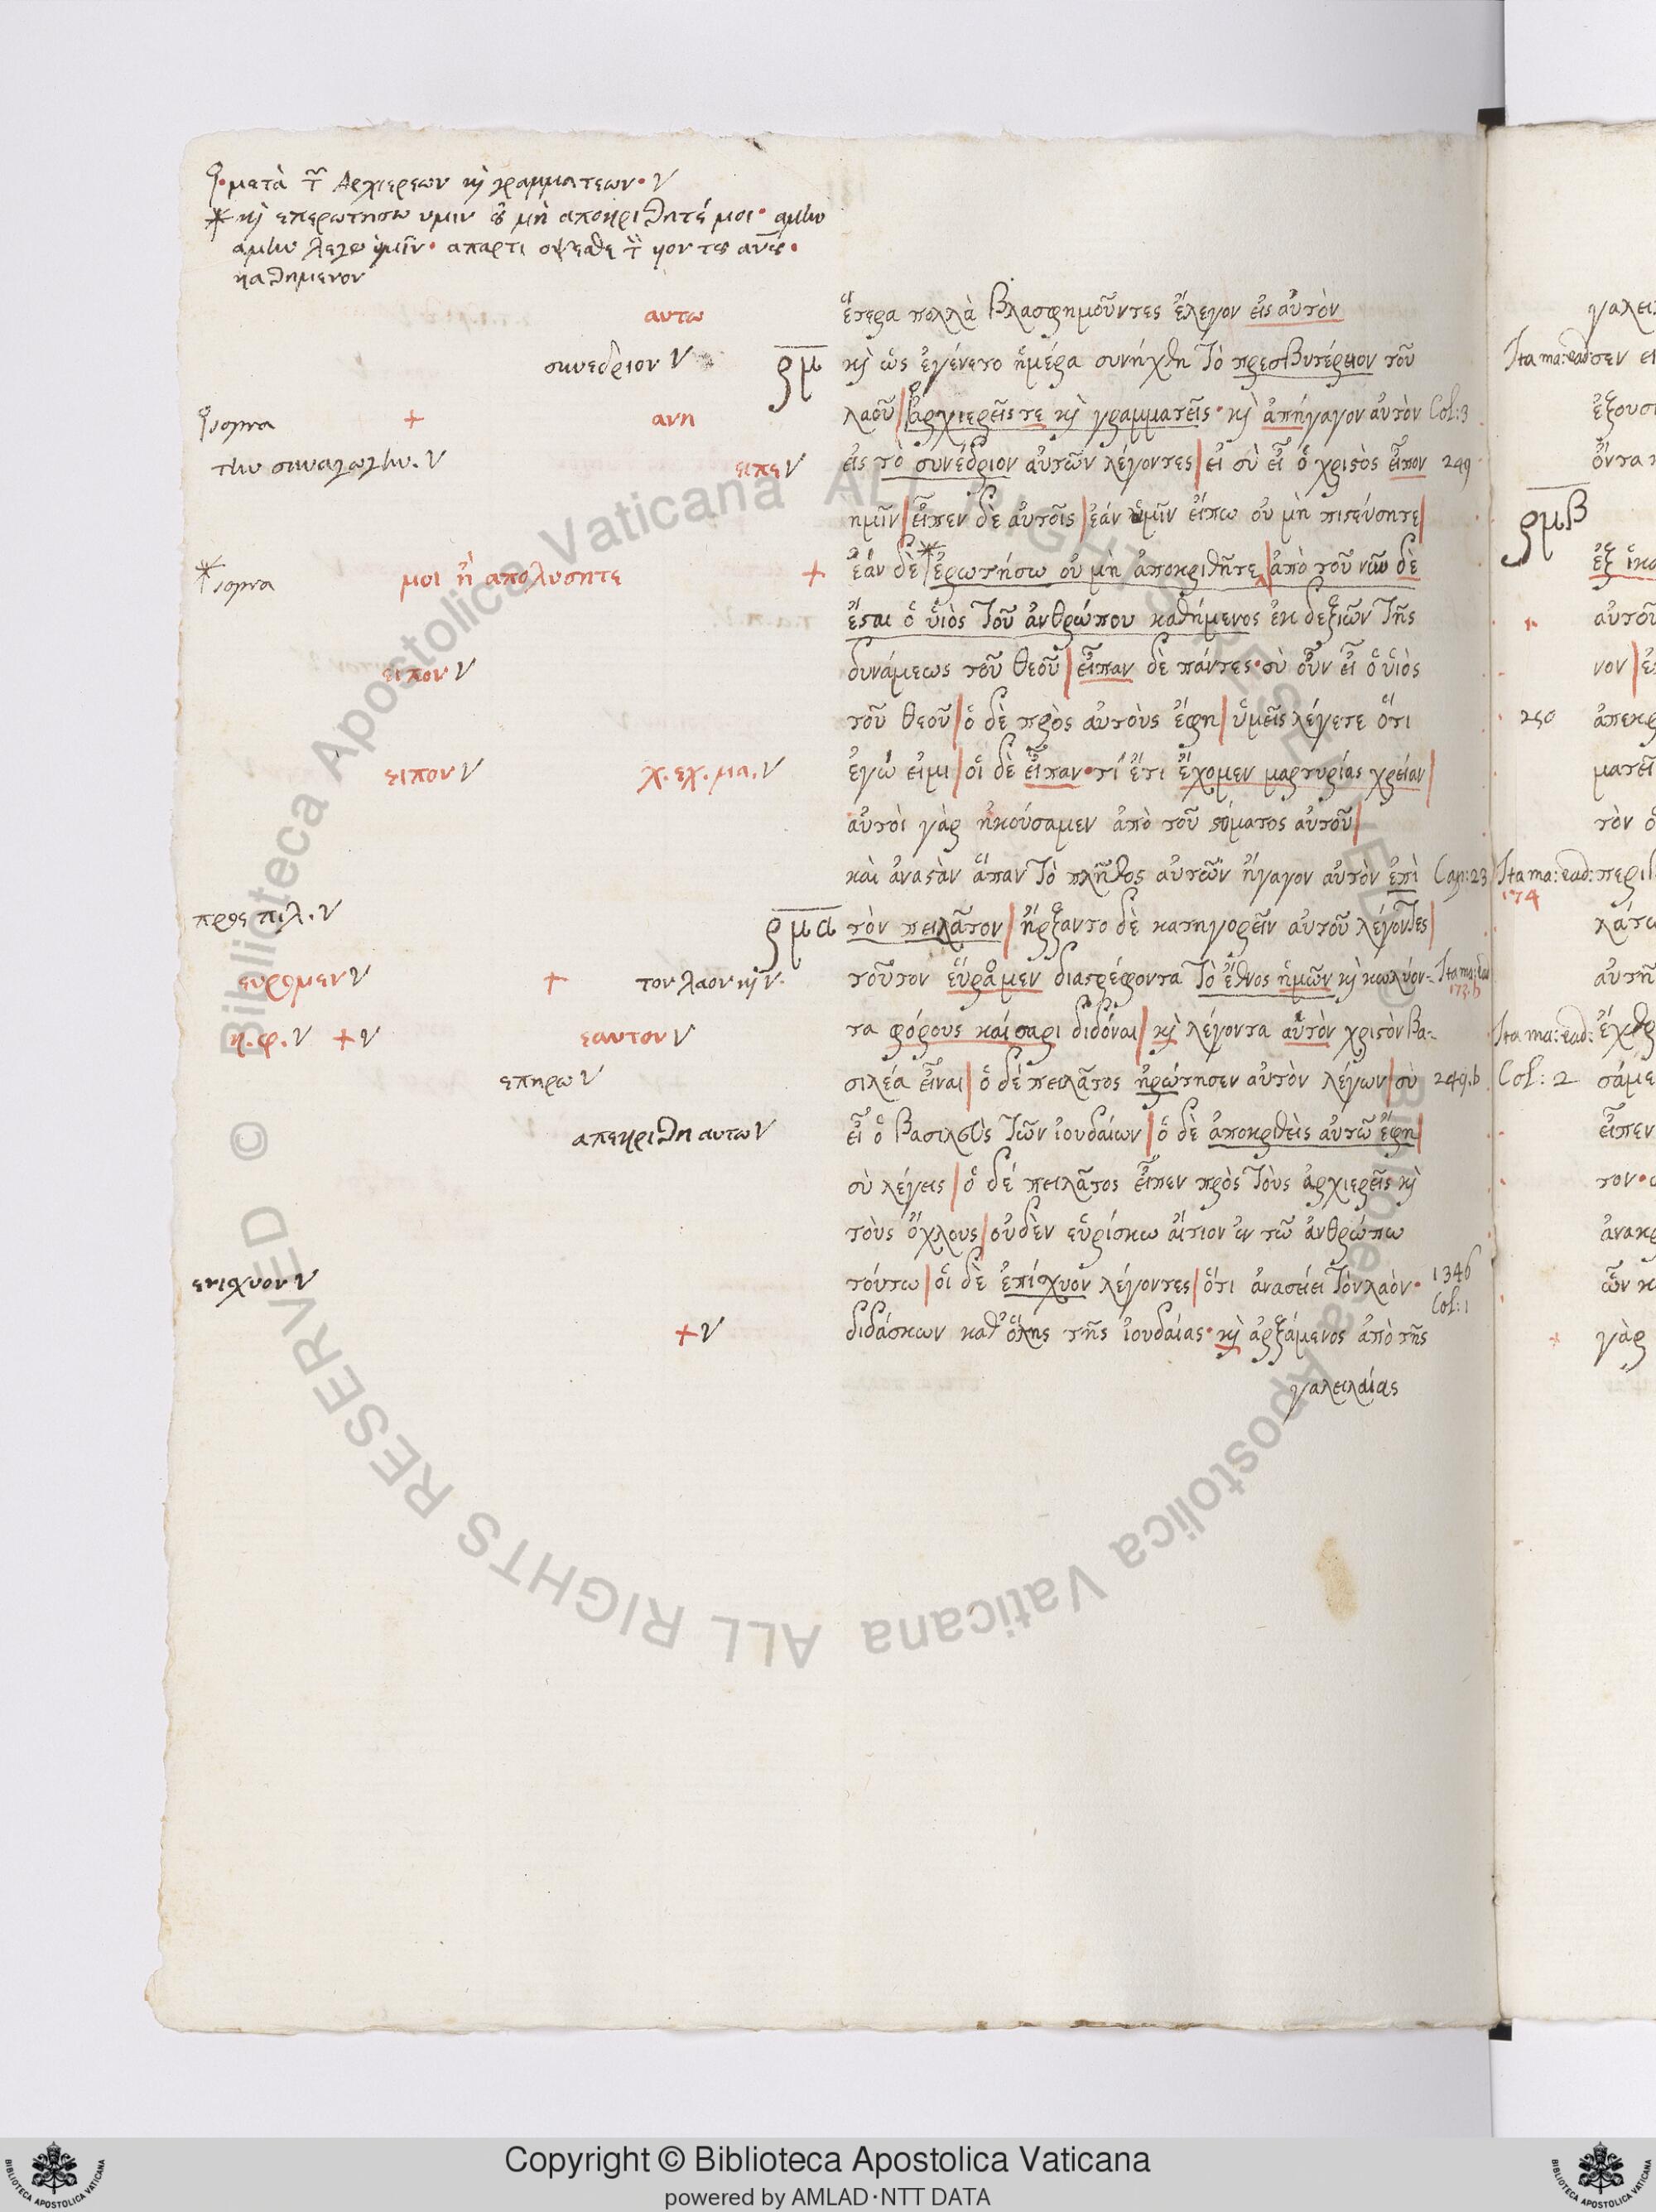 μετὰ τ̃ Αρχιερεων κ̀ γραμματεων· V
* κ̀ επερωτησω υμιν ȣ μὴ αποκριθητέ μοι· αμὴν
αμὴν λεγω ὑμῖν· απαρτι οψεσθε τ̀ υον τȣ ανȣ̅·
καθημενον
αυτω ἕτερα πολλὰ βλασφημοῦντες ἔλεγον εἰς αὐτὸν
συνεδριον V ρμ κ̀ ὡς ἐγένετο ἡμέρα συνήχθη τὸ πρεσβυτέρειον τοῦ
sopra + ανη λαοῦ| ἀρχιερεῖς τε κ̀ γραμματεῖς· κ̀ ἀπήγαγον αὐτὸν Col:3
την συναγωγὴν. V ειπε V εἰς τὸ σύνέδριον αὐτῶν λέγοντες| εἰ σὺ εἶ ὁ χριστὸς εἶπον 249
ημῖν| εἶπεν δὲ αὐτοῖς| ἐάν ὑμῖν εἴπω οὐ μὴ πιστεύσητε|
*sopra μοι ἢ απολυσητε + ἐάν δὲ * ἐρωτήσω οὐ μὴ ἀποκριθῆτε| ἀπὸ τοῦ νῦν δὲ
ἔσται ὁ ὑιὸς τοῦ ἀνθρώπου καθήμενος ἐκ δεξιῶν τῆς
ειπον V δυνάμεως τοῦ θεοῦ| εἶπαν δὲ πάντες· σὺ οὖν εἶ ὁ ὑιὸς
τοῦ θεοῦ| ὁ δὲ πρὸς αὐτοὺς ἔφη| ὑμεῖς λέγετε ὅτι
ειπον V χ. εχ. μα. V ἐγώ εἰμι| οἱ δὲ εἶπαν· τί ἔτι ἔχομεν μαρτυρίας χρείαν|
αὐτοὶ γὰρ ἠκούσαμεν ἀπὸ τοῦ στόματος αὐτοῦ|
καὶ ἀναστὰν ἅπαν τὸ πλῆθος αὐτῶν ἤγαγον αὐτὸν ἐπὶ Cap:23
προς πιλ. V ρμα τὸν πειλᾶτον| ἤρξαντο δὲ κατηγορεῖν αὐτοῦ λέγοντες|
ευρομεν V + τον λαον κ̀ V· τοῦτον εὕραμεν διαστρέφοντα τὸ ἔθνος ἡμῶν κ̀ κωλύον- Ita ma: ead
173.b
κ. φ. V + V εαυτον V τα φόρους καίσαρι διδόναι| κ̀ λέγοντα αὑτὸν χριστὸν βα-
επηρω V σιλέα εἶναι| ὁ δέ πειλᾶτος ἠρώτησεν αὐτὸν λέγων| σὺ 249.b
απεκριθη αυτω V εἶ ὁ βασιλεὺς τῶν ἰουδαίων| ὁ δὲ ἀποκριθεὶς αὐτῶ ἔφη|
σὺ λέγεις| ὁ δέ πειλᾶτος εἶπεν πρὸς τοὺς ἀρχιερεῖς κ̀
τοὺς ὄχλους| οὐδὲν εὑρίσκω αἴτιον ἐν τῶ ἀνθρώπω
ενισχυον V τούτω| οἱ δὲ ἐπίσχυον λέγοντες| ὅτι ἀνασείει τὸν λαὸν· 134b
Col:1
+ V διδάσκων καθ' ὅλης τῆς ἰουδαίας· κ̀ ἀρξάμενος ἀπὸ τῆς
γαλειλαίας
Ita ma: ead: σεν
ρμβ
αὐτοῦ
νον|
250
τὸν
Ita ma: ead:
174
Ita ma: ead:
Col: 2
εἶπεν
τον·
γὰρ
Biblioteca Apostolica Vaticana ALL RIGHTS RESERVED ©
Biblioteca Apostolica Vaticana ALL RIGHTS RESERVED ©
Copyright © Biblioteca Apostolica Vaticana
powered by AMLAD·NTT DATA
BIBLIOTECA APOSTOLICA VATICANA
BIBLIOTECA APOSTOLICA VATICANA